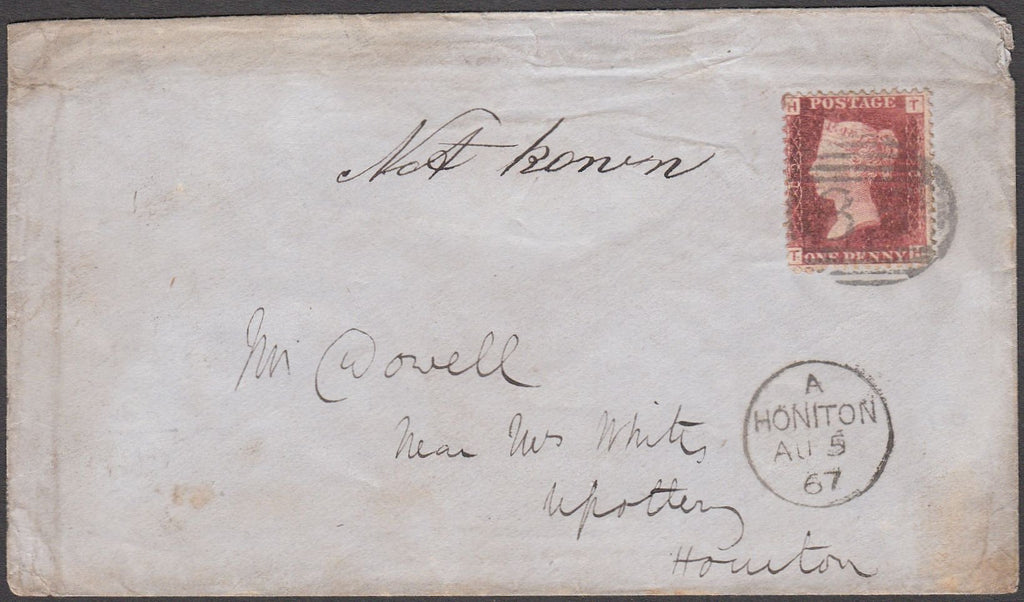 Not konwn
H POSTAGE T
3
T ONE PENNY H
Mr Dowell
Near Mrs Whites
Upottery
Honiton
A
HONITON
AU 5
67